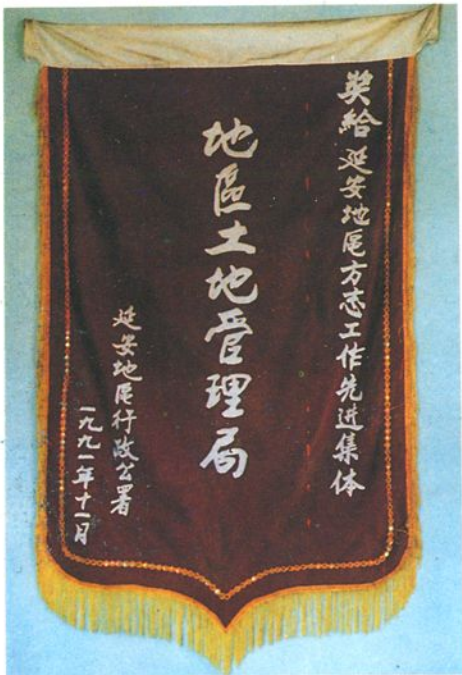 奖给延安地區方志工作先进集体
地區土地管理局
延安地區行政公署
一九九一年十一月